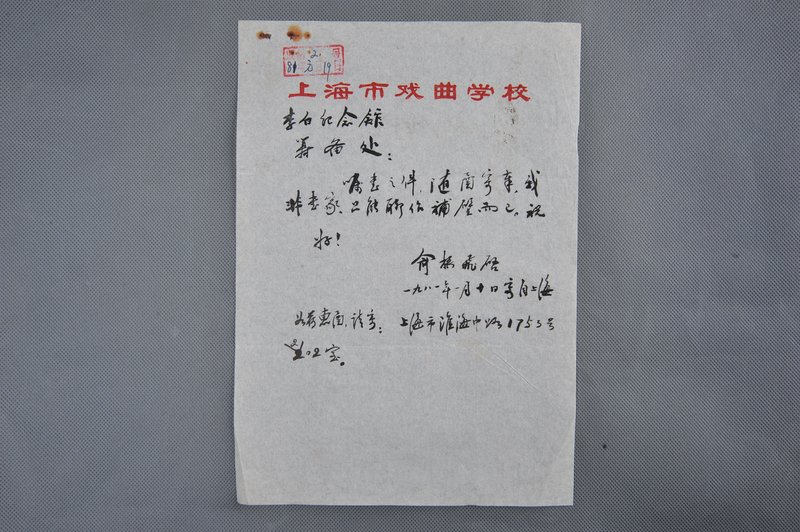 81 2 19
上海市戏曲学校
李白纪念馆
筹备处：
嘱书之件，随函寄奉，我
非书家，只能聊作补壁而已。祝
好！
俞振飞启
一九八一年一月十日寄自上海
如蒙惠函，请寄：上海市淮海中路1753号
室。